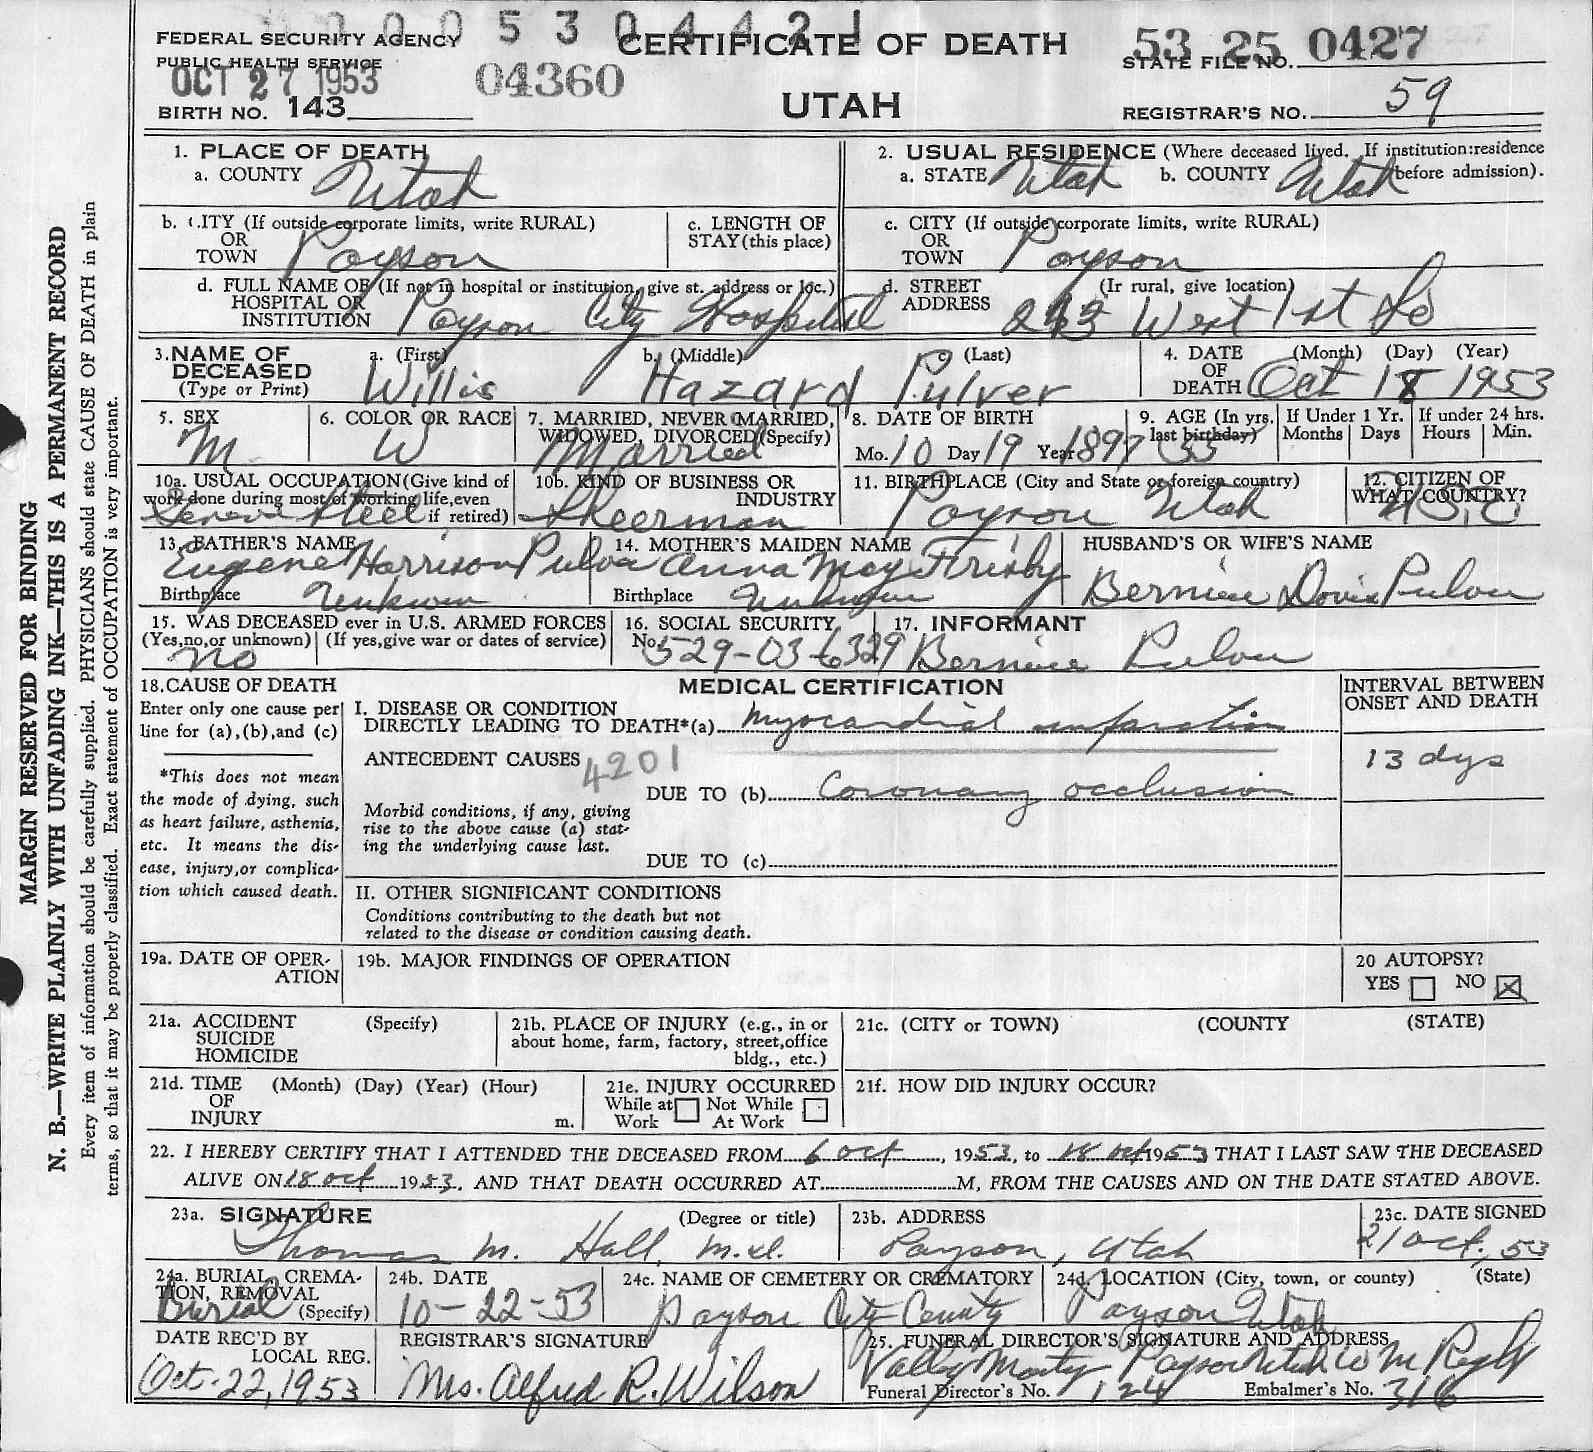 1 0 0 5 3 0 4 4 2 1
FEDERAL SECURITY AGENCY
PUBLIC HEALTH SERVICE
OCT 27 1953
04360
BIRTH NO. 143
CERTIFICATE OF DEATH
UTAH
53 25 0427
STATE FILE NO.
REGISTRAR'S NO. 59
1. PLACE OF DEATH
a. COUNTY Utah
2. USUAL RESIDENCE (Where deceased lived. If institution:residence before admission).
a. STATE Utah b. COUNTY Utah
b. CITY (If outside corporate limits, write RURAL)
OR
TOWN Payson
c. LENGTH OF
STAY (this place)
c. CITY (If outside corporate limits, write RURAL)
OR
TOWN Payson
d. FULL NAME OF (If not in hospital or institution, give st. address or loc.)
HOSPITAL OR
INSTITUTION Payson City Hospital
d. STREET (Ir rural, give location)
ADDRESS West 1st So
3. NAME OF DECEASED
(Type or Print)
a. (First) Willis b. (Middle) Hazard c. (Last) Pulver
4. DATE OF DEATH (Month) (Day) (Year)
Oct 18 1953
5. SEX
M.
6. COLOR OR RACE
W
7. MARRIED, NEVER MARRIED,
WIDOWED, DIVORCED (Specify)
Married
8. DATE OF BIRTH
Mo. 10 Day 19 Year 1897
9. AGE (In yrs. last birthday)
55
If Under 1 Yr. Months Days
If under 24 hrs. Hours Min.
10a. USUAL OCCUPATION (Give kind of
work done during most of working life, even
if retired)
Geneva Steel
10b. KIND OF BUSINESS OR
INDUSTRY
Skeerman
11. BIRTHPLACE (City and State or foreign country)
Payson Utah
12. CITIZEN OF
WHAT COUNTRY?
13. FATHER'S NAME
Eugene Harrison Pulver
Birthplace
14. MOTHER'S MAIDEN NAME
Anna May Frisby
Birthplace
HUSBAND'S OR WIFE'S NAME
Bernice Davis Pulver
15. WAS DECEASED ever in U.S. ARMED FORCES
(Yes,no,or unknown) (If yes,give war or dates of service)
no
16. SOCIAL SECURITY
No. 529-03-6329
17. INFORMANT
Bernice Pulver
18. CAUSE OF DEATH
Enter only one cause per
line for (a),(b),and (c)
*This does not mean
the mode of dying, such
as heart failure, asthenia,
etc. It means the dis-
ease, injury,or complica-
tion which caused death.
MEDICAL CERTIFICATION
I. DISEASE OR CONDITION
DIRECTLY LEADING TO DEATH*(a) Myocardial infarction
ANTECEDENT CAUSES 4201
DUE TO (b) Coronary occlusion
Morbid conditions, if any, giving
rise to the above cause (a) stat-
ing the underlying cause last.
DUE TO (c)
II. OTHER SIGNIFICANT CONDITIONS
Conditions contributing to the death but not
related to the disease or condition causing death.
INTERVAL BETWEEN
ONSET AND DEATH
13 dys
19a. DATE OF OPER-
ATION
19b. MAJOR FINDINGS OF OPERATION
20 AUTOPSY?
YES NO
21a. ACCIDENT (Specify)
SUICIDE
HOMICIDE
21b. PLACE OF INJURY (e.g., in or
about home, farm, factory, street,office
bldg., etc.)
21c. (CITY or TOWN) (COUNTY (STATE)
21d. TIME (Month) (Day) (Year) (Hour)
OF
INJURY m.
21e. INJURY OCCURRED
While at Work Not While At Work
21f. HOW DID INJURY OCCUR?
22. I HEREBY CERTIFY THAT I ATTENDED THE DECEASED FROM 6 Oct, 1953, to 18 Oct 1953 THAT I LAST SAW THE DECEASED
ALIVE ON 18 oct 1953, AND THAT DEATH OCCURRED AT M, FROM THE CAUSES AND ON THE DATE STATED ABOVE.
23a. SIGNATURE (Degree or title)
Thomas M. Hall, M.D.
23b. ADDRESS
Payson, Utah
23c. DATE SIGNED
21 Oct. 53
24a. BURIAL, CREMA-
TION, REMOVAL
(Specify)
Burial
24b. DATE
10-22-53
24c. NAME OF CEMETERY OR CREMATORY
Payson City County
24d. LOCATION (City, town, or county) (State)
Payson Utah
DATE REC'D BY
LOCAL REG.
Oct. 22, 1953
REGISTRAR'S SIGNATURE
Mrs. Alfred R. Wilson
25. FUNERAL DIRECTOR'S SIGNATURE AND ADDRESS
Valley Morty Payson Utah
Funeral Director's No. 124 Embalmer's No. 316
MARGIN RESERVED FOR BINDING
N. B.—WRITE PLAINLY WITH UNFADING INK—THIS IS A PERMANENT RECORD
Every item of information should be carefully supplied. PHYSICIANS should state CAUSE OF DEATH in plain
terms, so that it may be properly classified. Exact statement of OCCUPATION is very important.